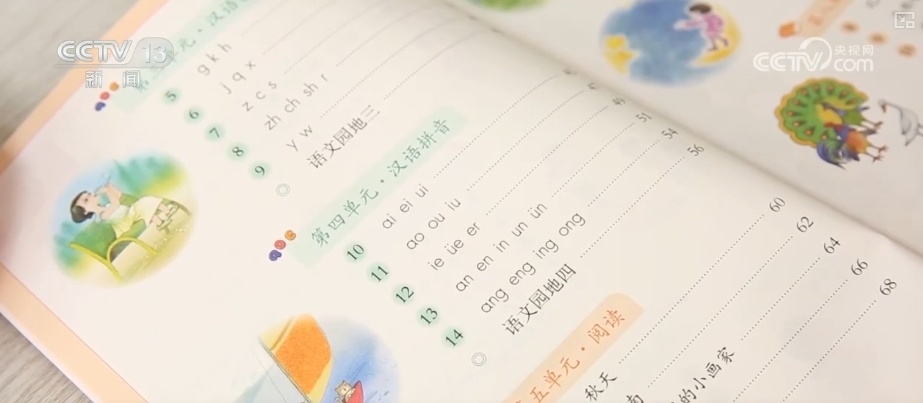 CCTV 13
新闻
央视网
CCTV.com
单元·汉语
5 g k h
6 j q x
7 z c s
8 zh ch sh r
9 y w
语文园地三
第四单元·汉语拼音
10 ai ei ui 47
11 ao ou iu 49
12 ie üe er 51
13 an en in un ün 54
14 ang eng ing ong 56
语文园地四
五单元·阅读
秋天 60
62
64
的小画家 66
68